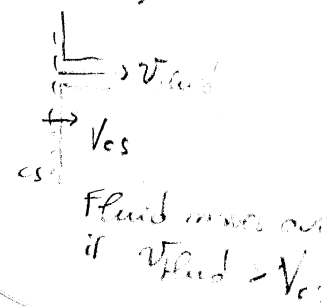 V fluid
Vcs
cs
Fluid moves
if Vfluid > Vc